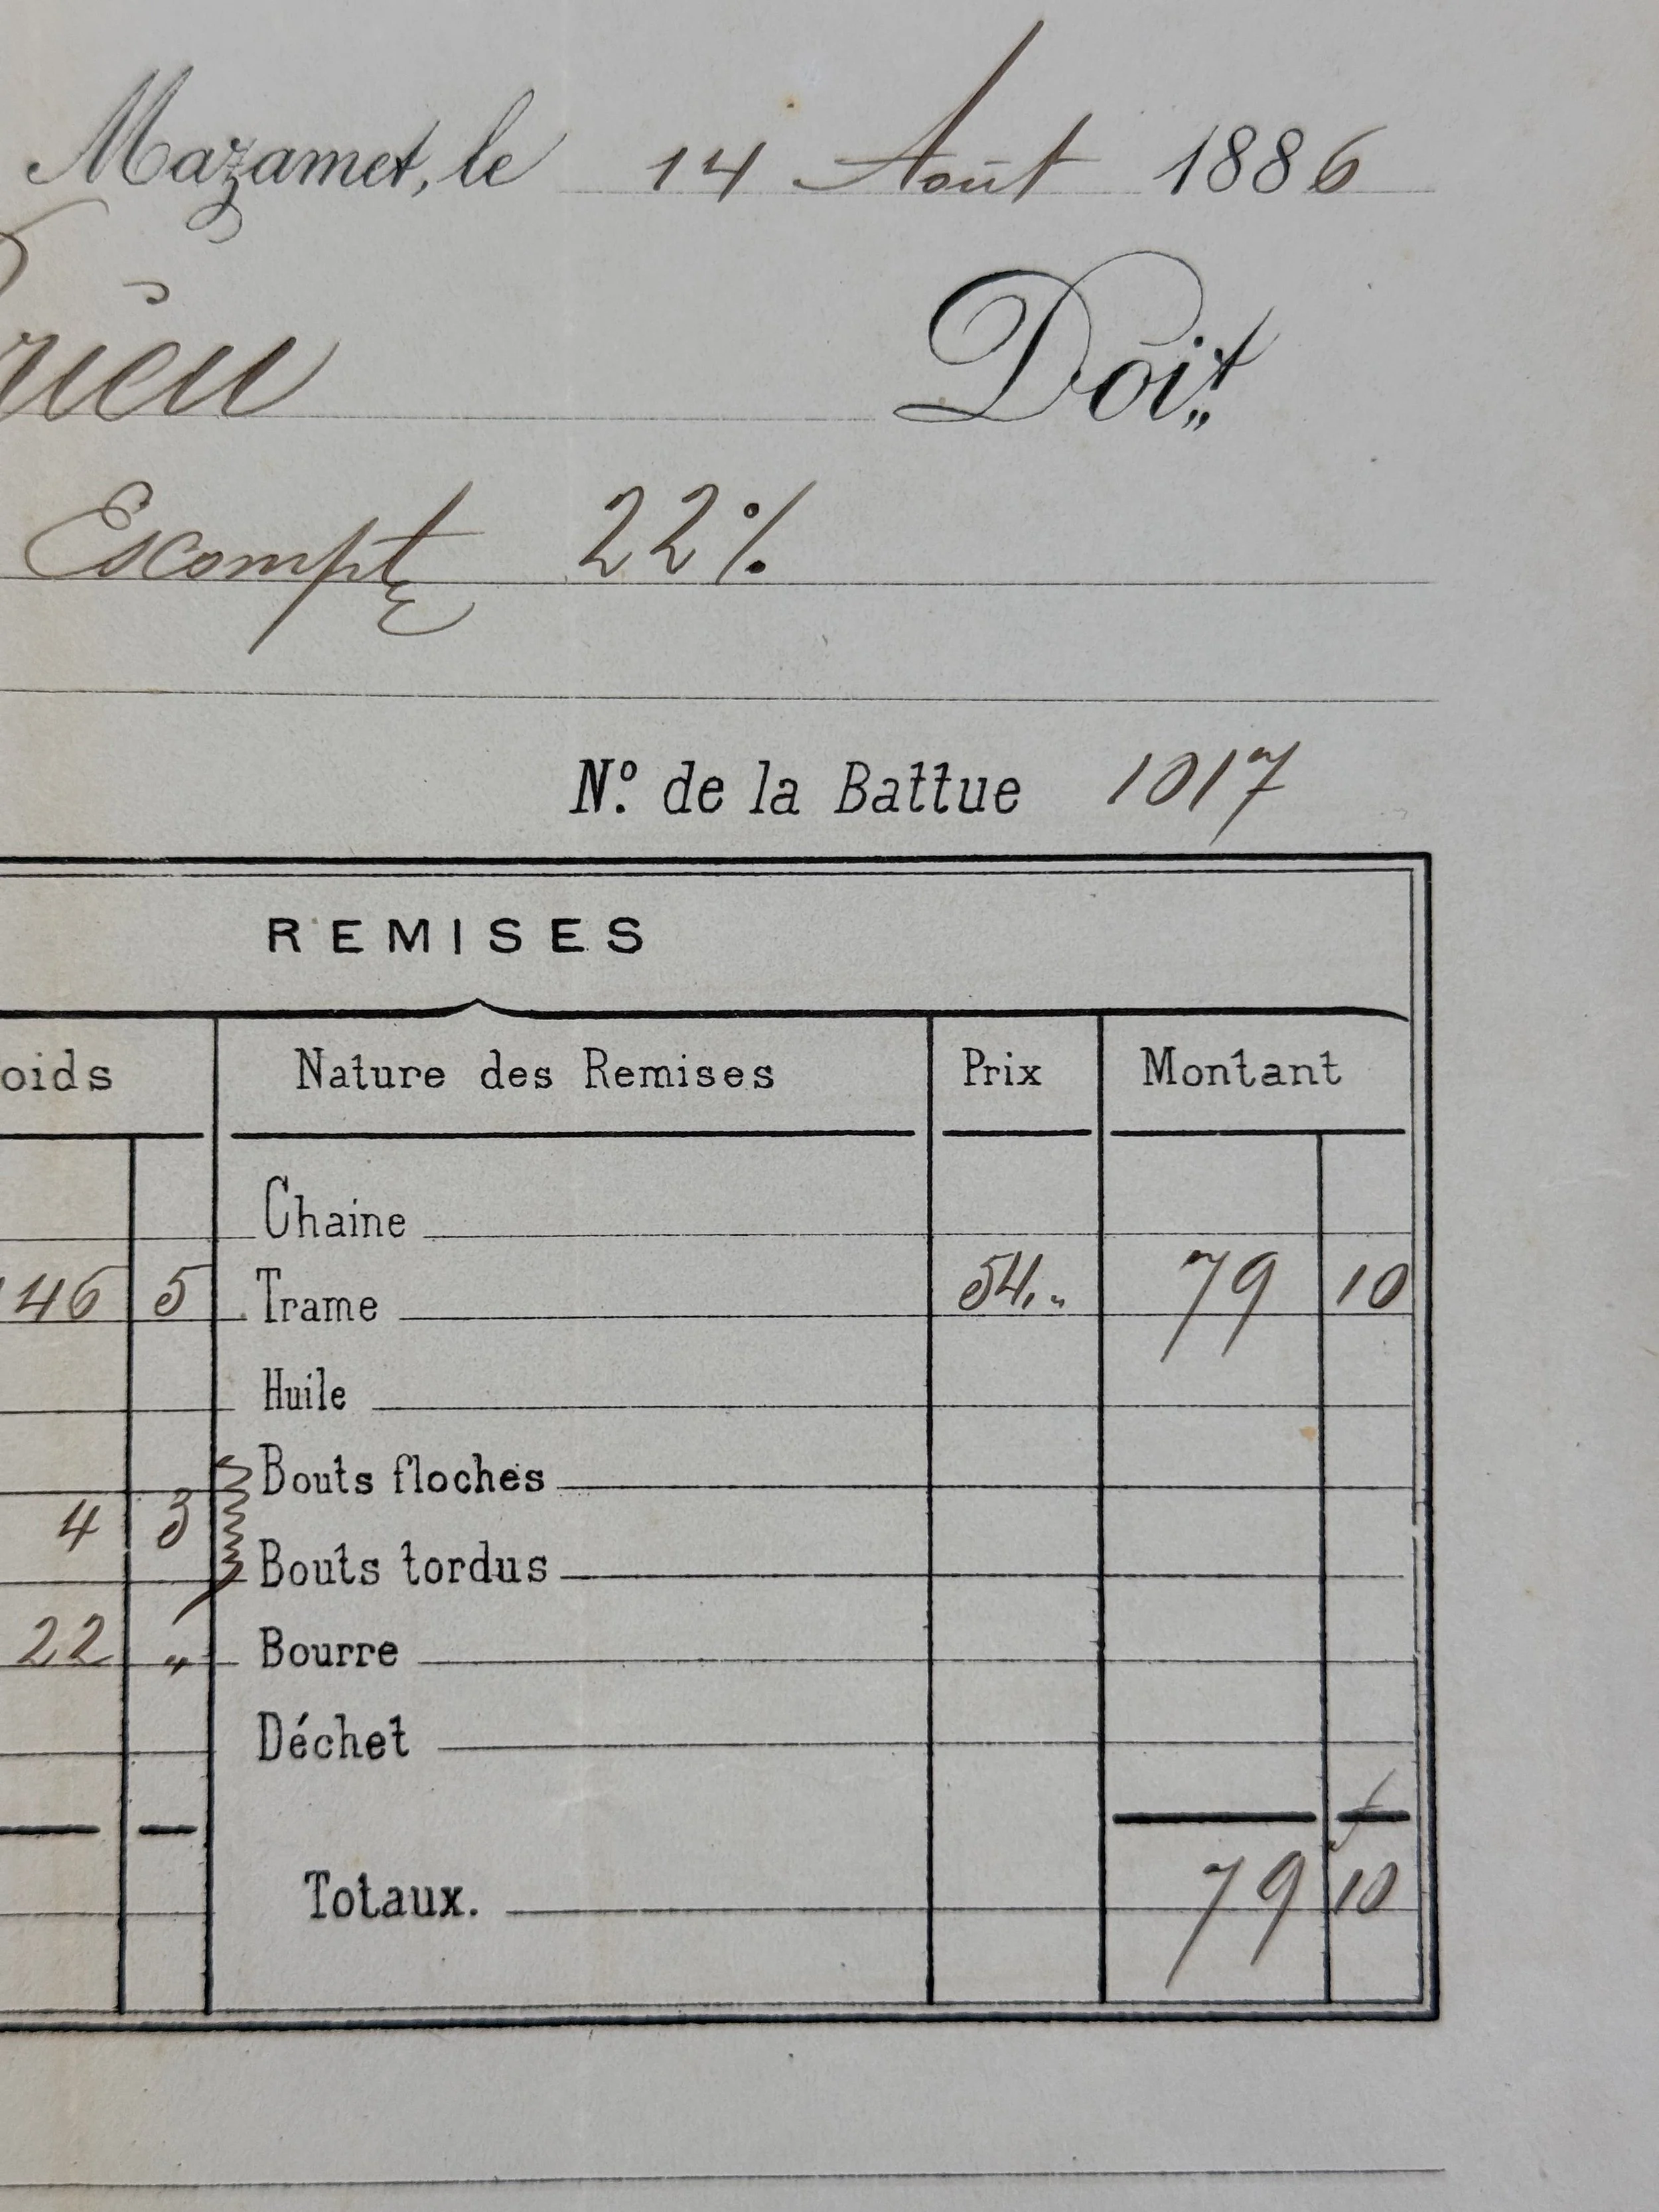 Mazamet, le 14 Août 1886
rieu Doit,,
Escompte 22 %
N.º de la Battue 1017
REMISES
oids Nature des Remises Prix Montant
Chaine
146 5 Trame 54,,, 79 10
Huile
Bouts floches
4 3
Bouts tordus
22 " Bourre
Déchet
f
Totaux. 79 10